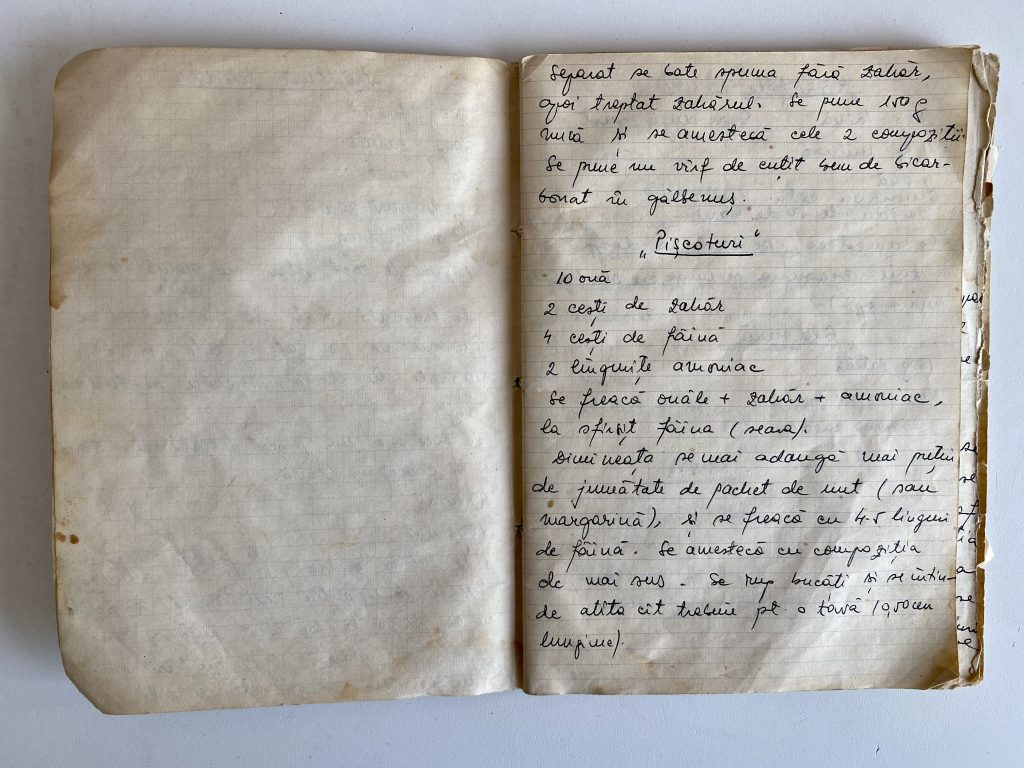 Separat se bate spuma fără zahăr,
apoi treptat zahărul. Se pune 150 g
nucă și se amestecă cele 2 compoziții.
Se pune un vîrf de cuțit bun de bicar-
bonat în gălbenuș.
„Pișcoturi“
10 ouă
2 cești de zahăr
4 cești de făină
2 lingurițe amoniac
Se freacă ouăle + zahăr + amoniac,
la sfîrșit făina (seara).
Dimineața se mai adaugă mai puțin
de jumătate de pachet de unt (sau
margarină), și se freacă cu 4-5 linguri
de făină. Se amestecă cu compoziția
de mai sus. Se rup bucăți și se întin-
de atîta cît trebuie pt. o tavă (0,50 cm
lungime).